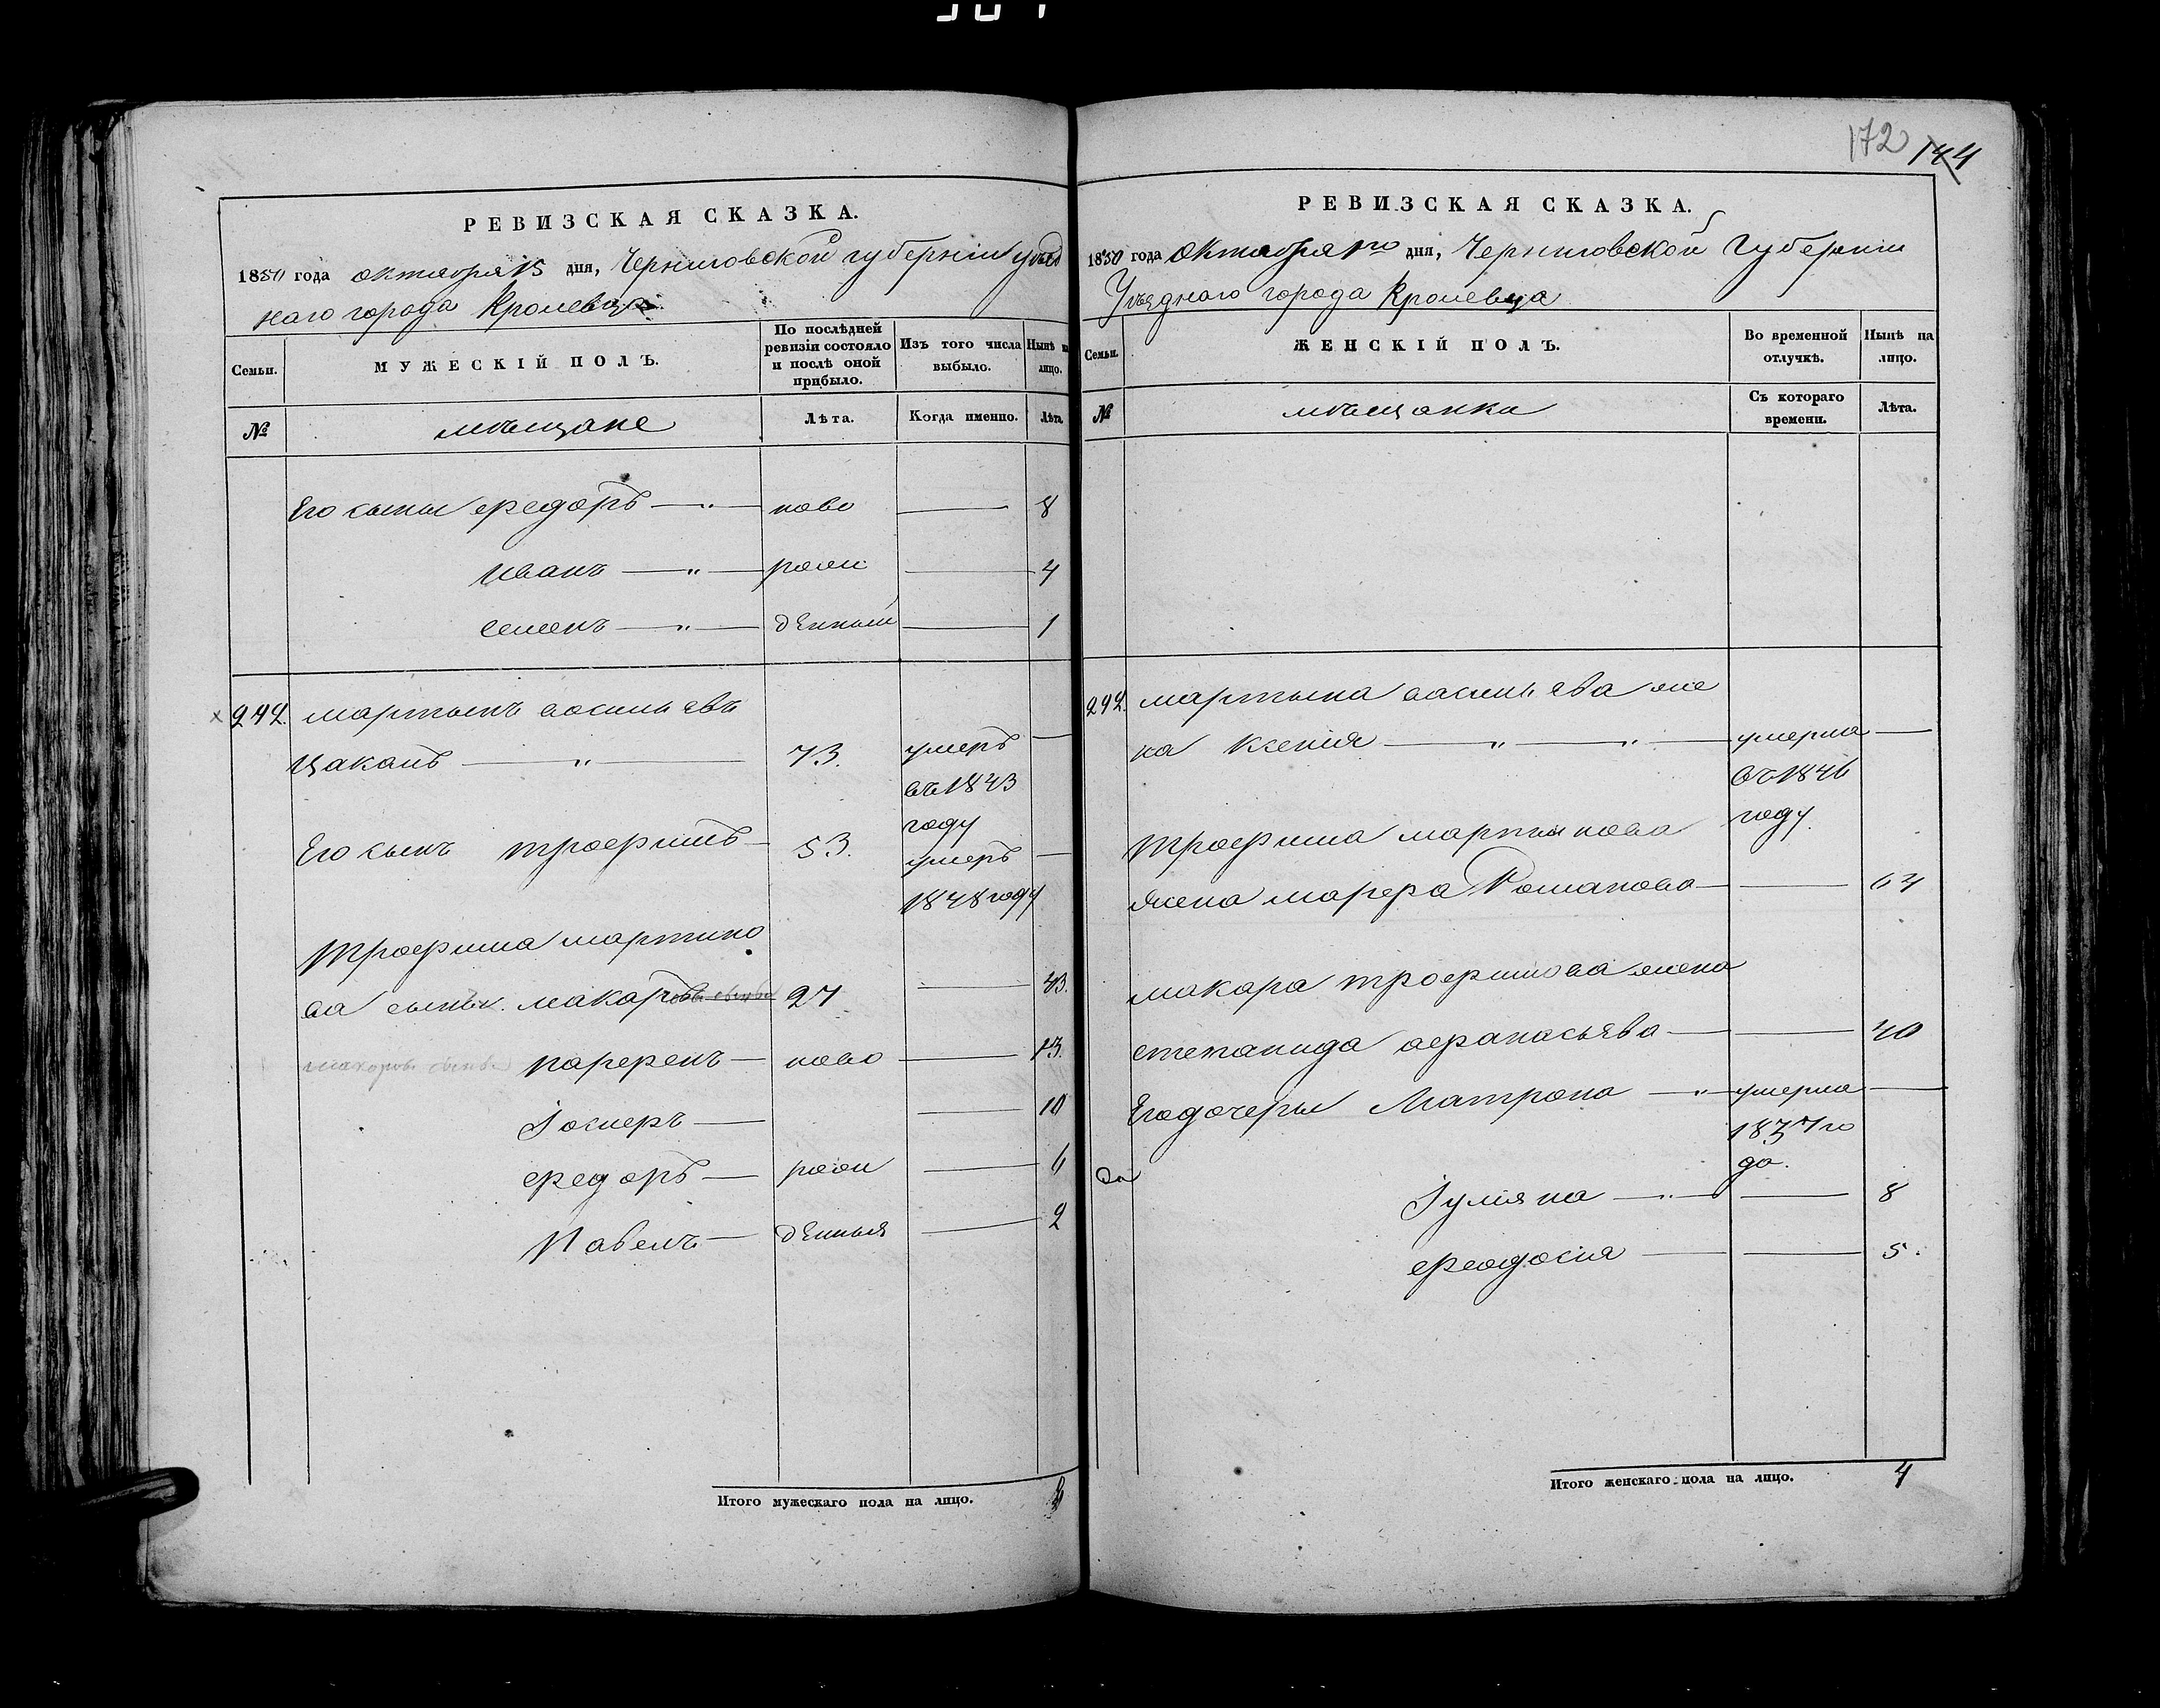 172 144
РЕВИЗСКАЯ СКАЗКА.
1850 года октября 15 дня, Черниговской губернiи уѣзд
наго города Кролевца
Семьи.
МУЖЕСКІЙ ПОЛЪ.
По послѣдней ревизіи состояло и послѣ оной прибыло.
Изъ того числа выбыло.
Нынѣ на лицо.
№
мѣщане
Лѣта.
Когда именно.
Лѣта.
Его сыны Федоръ — " — ново — 8
Иванъ — " — рож — 4
Семенъ — " — денныи — 1
242. Мартынъ Васильевъ
Цаканъ — " — 73. умеръ —
въ 1843
году
Его сынъ Трофимъ — 53. умеръ —
1848 году
Трофима Мартино
ва сынъ Макаръ 27 — 43.
Макаровы сыновья Парфенъ — ново — 13.
Іосифъ — — 10
Федоръ — рож — 6
Павелъ — денныя — 2
Итого мужескаго пола на лицо.
РЕВИЗСКАЯ СКАЗКА.
1850 года октября дня, Черниговской Губерніи
Уѣзднаго города Кролевца
Семьи.
ЖЕНСКІЙ ПОЛЪ.
Во временной отлучкѣ.
Нынѣ на лицо.
№
мѣщанки
Съ котораго времени.
Лѣта.
242. Мартына Васильева же
на Ксенія — " — " — умерла —
въ 1846
году.
Трофима Мартинова
жена Марфа Романова — — 64
Макара Трофимова жена
Степанида Афанасьева — — 40
Его дочеры Матрона — " — умерла —
1837 го
да.
Іулiяна — " — — 8
Феодосия — — 5.
Итого женскаго пола на лицо. 4